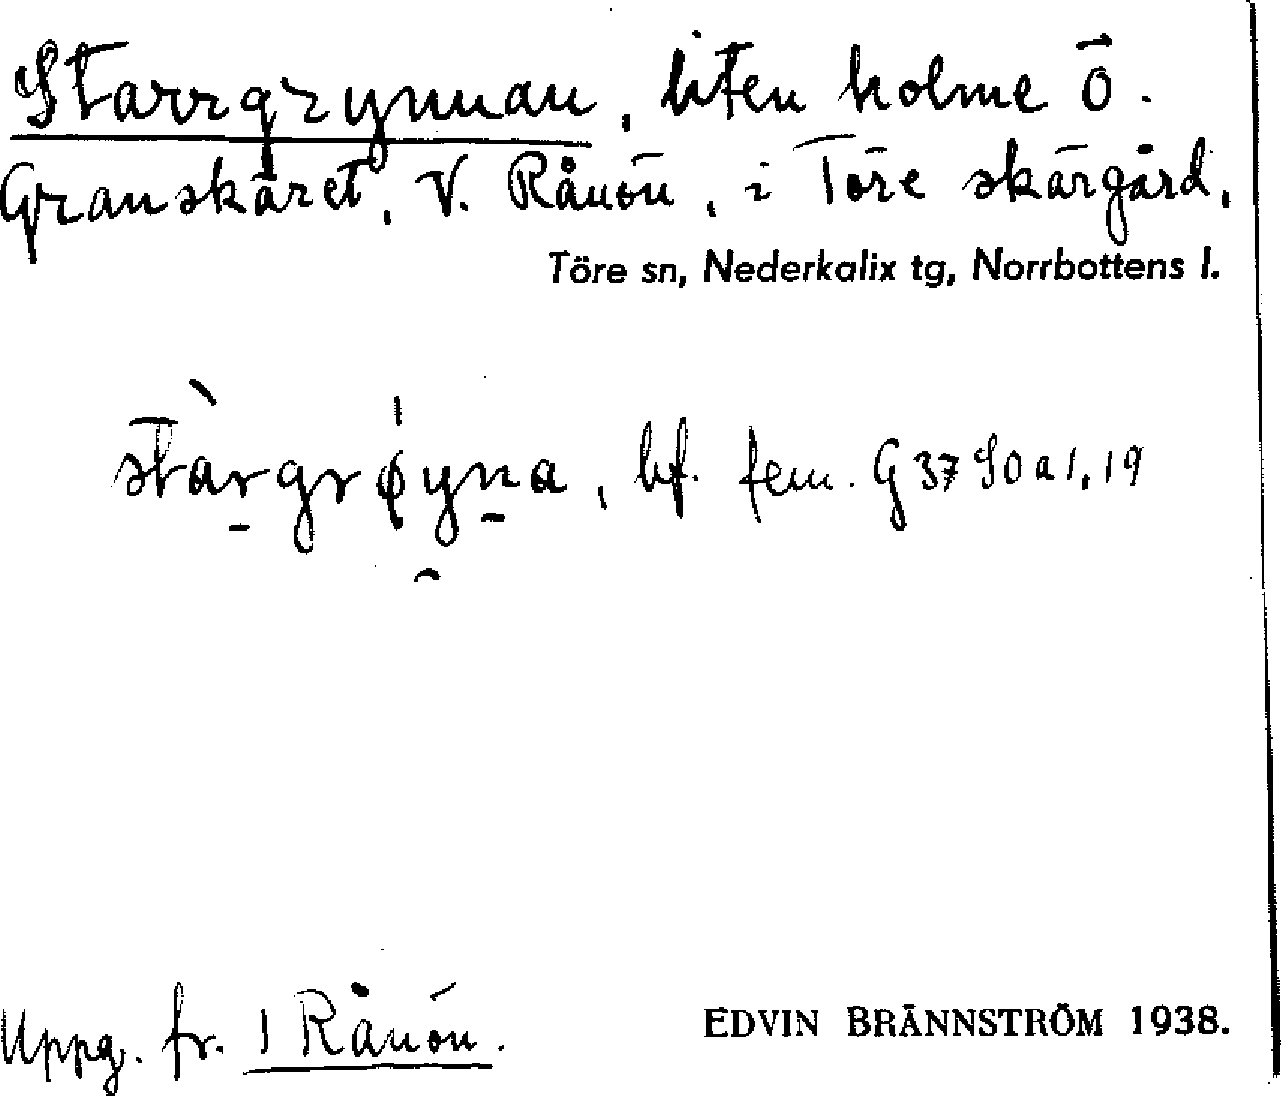 Starrgrynnan, liten holme Ö.
Granskäret, V. Rånön, i Töre skärgård,
Töre sn, Nederkalix tg, Norrbottens l.
stàrgrǿyna, bf. fem. G 37 S0 a 1, 19
Uppg. fr. 1 Rånön.
EDVIN BRÄNNSTRÖM 1938.